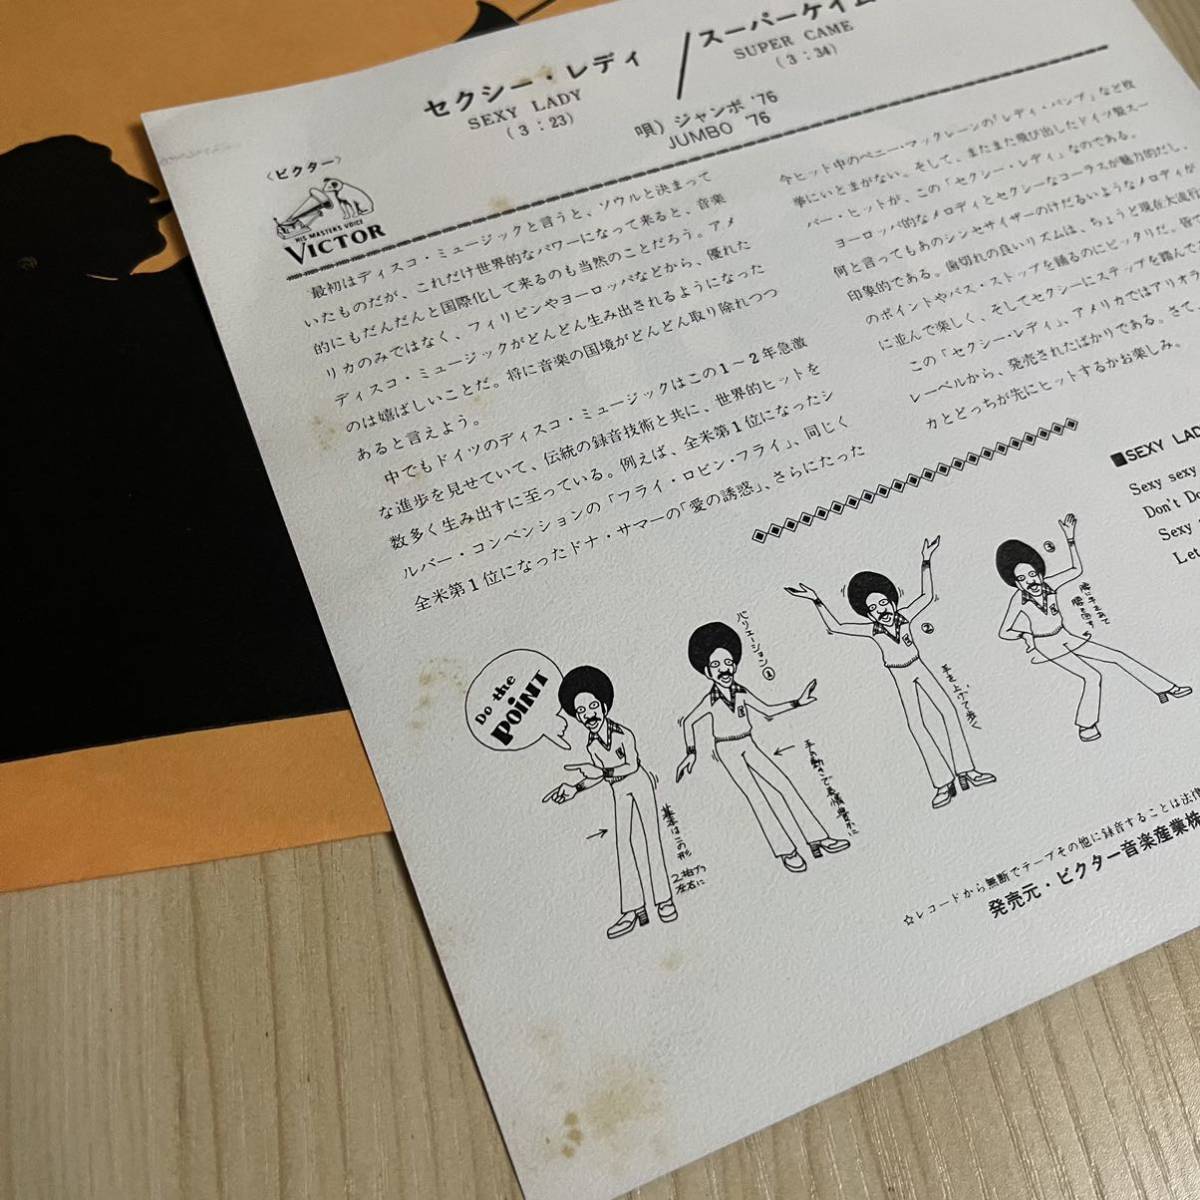 セクシー・レディ
SEXY LADY
(3:23)
スーパーケイム
SUPER CAME
(3:34)
唄)ジャンボ '76
JUMBO '76
〈ビクター〉
HIS MASTER'S VOICE
VICTOR
最初はディスコ・ミュージックと言うと、ソウルと決まって
いたものだが、これだけ世界的なパワーになって来ると、音楽
的にもだんだんと国際化して来るのも当然のことだろう。アメ
リカのみではなく、フィリピンやヨーロッパなどから、優れた
ディスコ・ミュージックがどんどん生み出されるようになった
のは嬉ばしいことだ。将に音楽の国境がどんどん取り除れつつ
あると言えよう。
中でもドイツのディスコ・ミュージックはこの1~2年急激
な進歩を見せていて、伝統の録音技術と共に、世界的ヒットを
数多く生み出すに至っている。例えば、全米第1位になったシ
ルバー・コンベンションの「フライ・ロビン・フライ」、同じく
全米第1位になったドナ・サマーの「愛の誘惑」、さらにたった
今ヒット中のペニー・マックレーンの「レディ・バンプ」など枚
挙にいとまがない。そして、またまた飛び出したドイツ製スー
パー・ヒットが、この「セクシー・レディ」なのである。
ヨーロッパ的なメロディとセクシーなコーラスが魅力的だし、
何と言ってもあのシンセサイザーのけだるいようなメロディが
印象的である。歯切れの良いリズムは、ちょうど現在大流行
のポイントやバス・ストップを踊るのにピッタリだ。皆
に並んで楽しく、そしてセクシーにステップを踏んで
この「セクシー・レディ」、アメリカではアリオラ
レーベルから、発売されたばかりである。さて、
カとどっちが先にヒットするかお楽しみ。
■SEXY LAD
Sexy sexy
Don't Do
Sexy
Let
Do the
POINT
基本はこの形
2拍づつ
左右に
バリエーション①
手の動きでも情費かに
②
手を上げて歩く
③
☆レコードから無断でテープその他に録音することは法律
発売元・ビクター音楽産業株